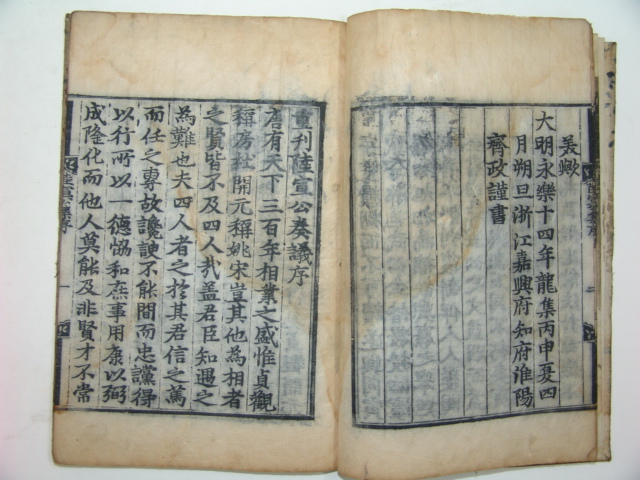 美歟
大明永樂十四年龍集丙申夏四
月朔旦浙江嘉興府知府淮陽
齊政謹書
重刊陸宣公奏議序
唐有天下三百年相業之盛惟貞觀
稱房杜開元稱姚宋豈其他為相者
之賢皆不及四人㢤盖君臣知遇之
為難也夫四人者之於其君信之篤
而任之專故讒諛不能間而忠讜得
以行所以一德恊和庶事用康以弼
成隆化而他人莫能及非賢才不常